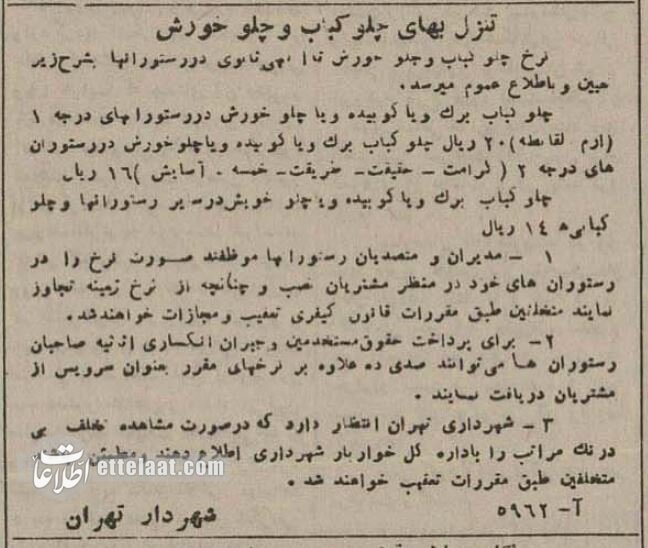 تنزل بهای چلو کباب و چلو خورش
نرخ چلو کباب و چلو خورش تا آگهی ثانوی در رستورانها بشرح زیر
تعیین و باطلاع عموم میرسد.
چلو کباب برك و یا کوبیده و یا چلو خورش در رستورانهای درجه ۱
(ارم لقانطه) ۲۰ ریال چلو کباب برك و یا کوبیده و یا چلو خورش در رستوران
های درجه ۲ ( کرامت - حقیقت - طریقت - خمسه - آسایش )۱۶ ریال
چلو کباب برك و یا کوبیده و یا چلو خورش در سایر رستورانها و چلو
کبابی‌ها ۱۴ ریال
۱ - مدیران و متصدیان رستورانها موظفند صورت نرخ را در
رستوران های خود در منظر مشتریان نصب و چنانچه از نرخ زمینه تجاوز
نمایند متخلفین طبق مقررات قانون کیفری تعقیب و مجازات خواهند شد.
۲- برای پرداخت حقوق مستخدمین و جبران انکساری اثاثیه صاحبان
رستوران ها می‌توانند صدی ده علاوه بر نرخهای مقرر بعنوان سرویس از
مشتریان دریافت نمایند.
۳ - شهرداری تهران انتظار دارد که در صورت مشاهده تخلف بی
درنك مراتب را باداره کل خواربار شهرداری اطلاع دهند و مطمئن
متخلفین طبق مقررات تعقیب خواهند شد.
آ- ۵۹۶۲ شهردار تهران
اطلاعات ettelaat.com